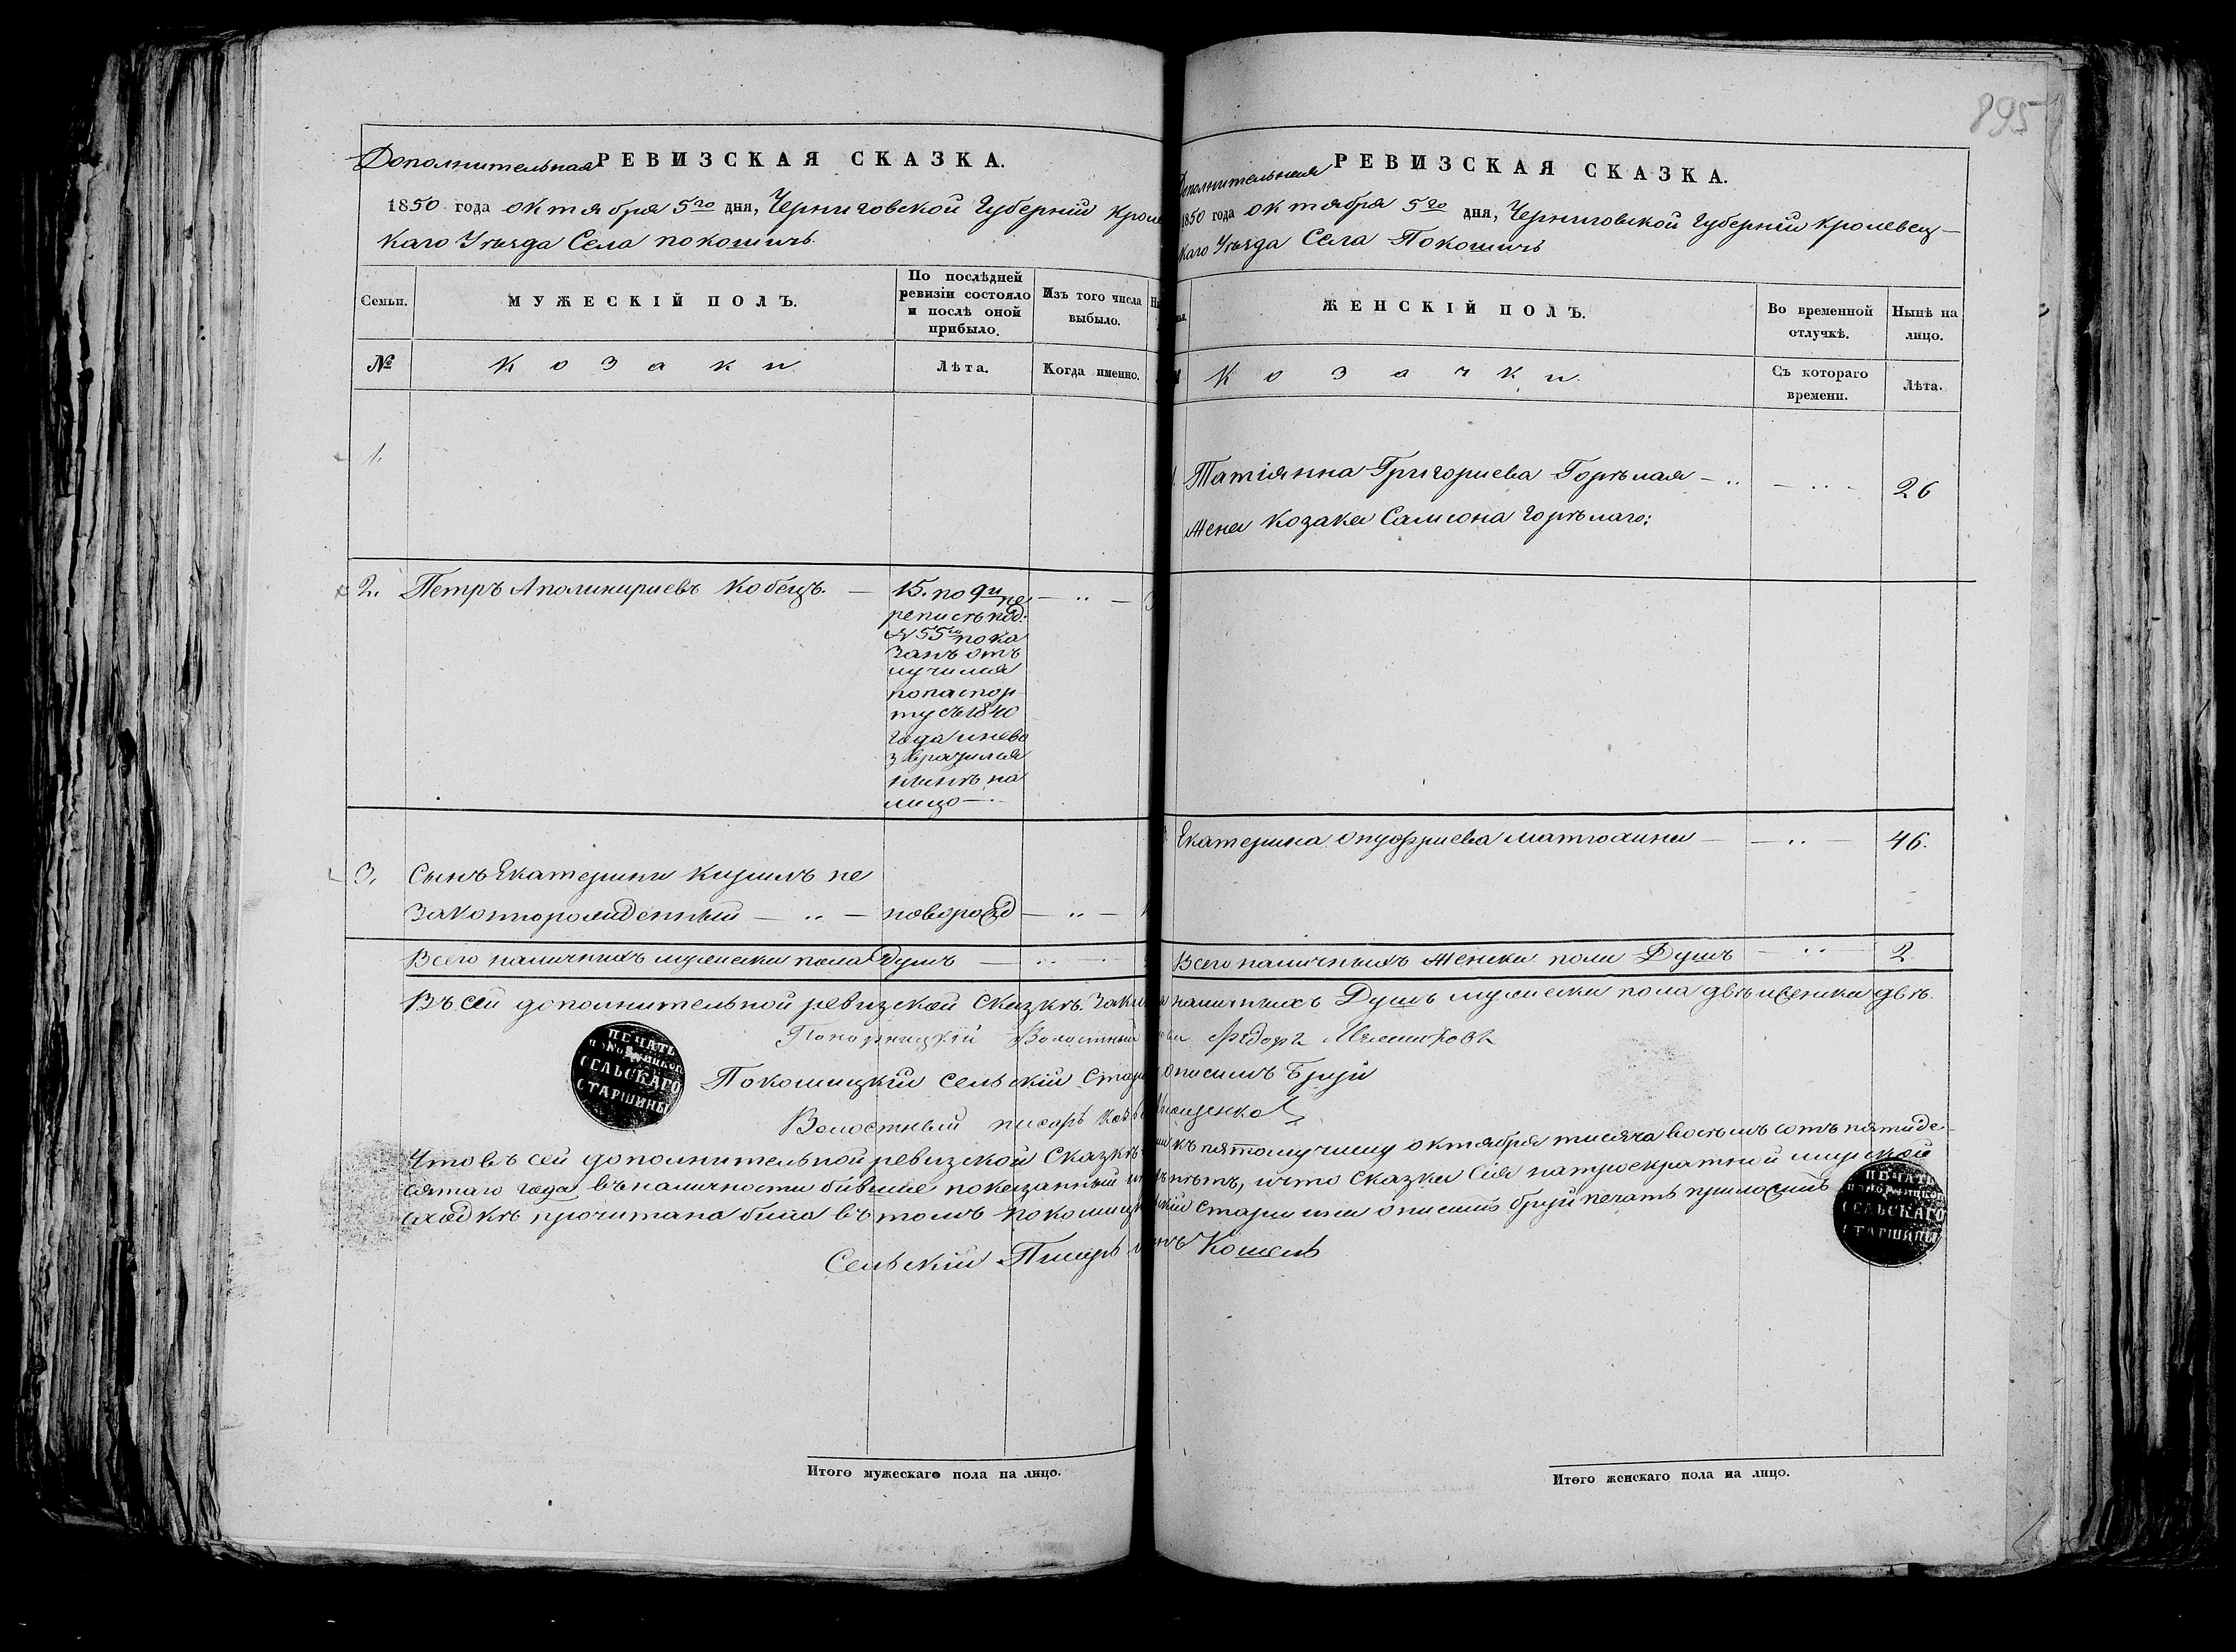 895
Дополнительная РЕВИЗСКАЯ СКАЗКА.
1850 года октября 5го дня, Черниговской Губернiи Кроле
каго Уѣзда Села Покошичь.
Семьи.
МУЖЕСКIЙ ПОЛЪ.
По послѣдней
ревизiи состояло
и послѣ оной
прибыло.
Изъ того числа
выбыло.
№
Козаки
Лѣта.
Когда именно.
1.
2. Петръ Аполинариевъ Кобецъ. —
15. по 9й пе
реписѣ под:
№ 55м пока
занъ отъ
лучился
по паспор
ту съ 1840
года и нево
звратился
нынѣ на
лицо —
3. Сынъ Екатерины Кирилъ не
законнорожденный — новорожд —
Всего наличныхъ мужеска пола Душъ —
Дополнительная РЕВИЗСКАЯ СКАЗКА.
1850 года октября 5го дня, Черниговской Губернiи Кролевец-
каго Уѣзда Села Покошичь
ЖЕНСКIЙ ПОЛЪ.
Во временной
отлучкѣ.
Нынѣ на
лицо.
Козачки.
Съ котораго
времени.
Лѣта.
Татiянна Григориева Горѣлая — 26
Жена Козака Самсона Горѣлаго;
Екатерина Онуфриева Матюхина — 46.
Всего наличныхъ Женска пола Душъ — 2
Въ сей дополнительной ревизской Сказкѣ наличныхъ Душъ мужеска пола двѣ и женска двѣ.
Волостный Федоръ
Покошицкiй Сельскiй Онисимъ Бруй
Волостный писарь
Что въ сей дополнительной ревизской Сказкѣ къ пятому числу октября тисяча восемъ сотъ пятиде-
сятаго года въ наличности бывшие показанный нѣтъ, и что Сказка Сiя на троекратной мирской
сходкѣ прочитана была въ томъ Старшина Онисимъ Бруй печать приложилъ
Сельскiй Писарь Кошель
ПЕЧАТЬ
СЕЛЬСКАГО
СТАРШИНЫ
ПЕЧАТЬ
СЕЛЬСКАГО
СТАРШИНЫ
Итого мужескаго пола на лицо.
Итого женскаго пола на лицо.